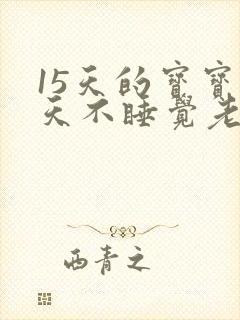 15天的寶寶
天不睡覺老
西青之